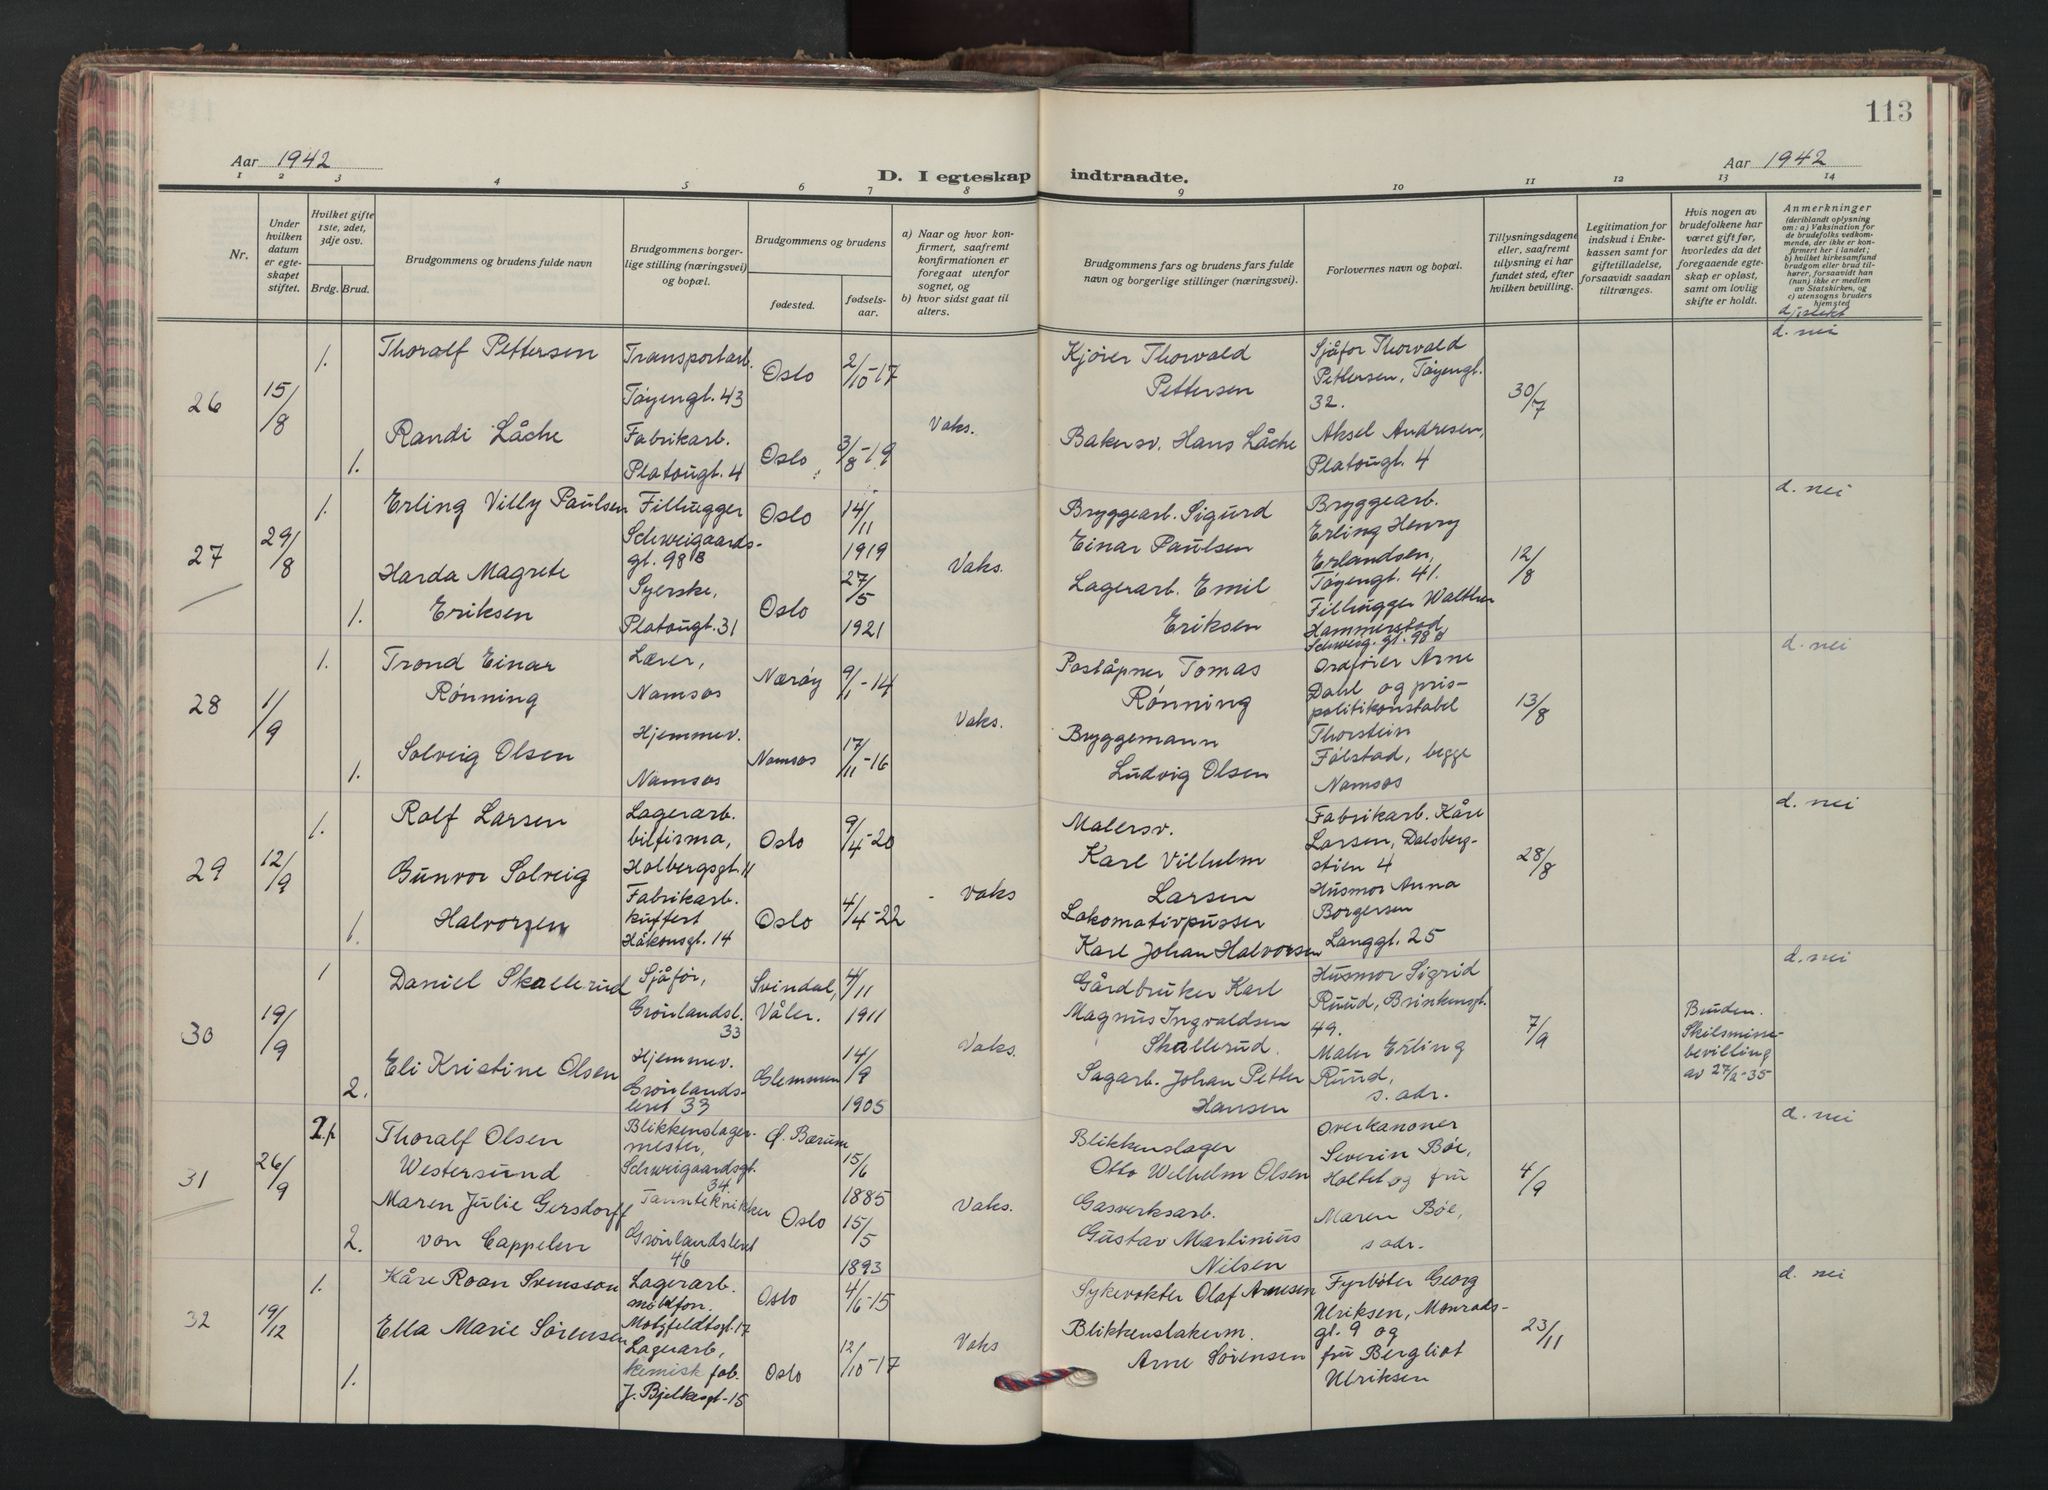 113
Aar 1942
D. I egteskap indtraadte.
Aar 1942
1 2 3 4 5 6 7 8 9 10 11 12 13 14
Nr.
Under
hvilken
datum
er egte-
skapet
stiftet.
Hvilket gifte
1ste, 2det,
3dje osv.
Brdg. Brud.
Brudgommens og brudens fulde navn
Brudgommens borger-
lige stilling (næringsvei)
og bopæl.
Brudgommens og brudens
fødested.
fødsels-
aar.
a) Naar og hvor kon-
firmert, saafremt
konfirmationen er
foregaat utenfor
sognet, og
b) hvor sidst gaat til
alters.
Brudgommens fars og brudens fars fulde
navn og borgerlige stillinger (næringsvei).
Forlovernes navn og bopæl.
Tillysningsdagene
eller, saafremt
tillysning ei har
fundet sted, efter
hvilken bevilling.
Legitimation for
indskud i Enke-
kassen samt for
giftetilladelse,
forsaavidt saadan
tiltrænges.
Hvis nogen av
brudefolkene har
været gift før,
hvorledes da det
foregaaende egte-
skap er opløst,
samt om lovlig
skifte er holdt.
Anmerkninger
(deriblandt oplysning
om: a) Vaksination for
de brudefolks vedkom-
mende, der ikke er kon-
firmert her i landet;
b) hvilket kirkesamfund
brudgom eller brud til-
hører, forsaavidt han
(hun) ikke er medlem
av Statskirken, og
c) utensogns bruders
hjemsted
d) slekt
26
15/8
1.
Thoralf Pettersen
Transportarb.
Tøyengt. 43
Oslo
2/10-17
Kjører Thorvald
Pettersen
Sjåfør Thorvald
Pettersen, Tøyengt.
32.
30/7
d. nei
1.
Randi Låche
Fabrikarb.
Platougt. 4
Oslo
3/8-19
Vaks.
Bakersv. Hans Låche
Aksel Andresen,
Platougt. 4
27
29/8
1.
Erling Villy Paulsen
Filhugger
Schweigaards-
gt. 98B
Oslo
14/11
1919
Vaks.
Bryggearb. Sigurd
Einar Paulsen
Bryggearb.
Erling Henry
Erlandsen,
Tøyengt. 41.
12/8
d. nei
1.
Harda Magrete
Eriksen
Syerske,
Platougt. 31
Oslo
27/5
1921
Lagerarb. Emil
Eriksen
Filhugger Walther
Hammerstad
Schweig. gt. 98B
28
1/9
1.
Trond Einar
Rønning
Lærer,
Namsos
Nærøy
9/1-14
Vaks.
Poståpner Tomas
Rønning
Ordfører Arne
Dahl og pris-
politikonstabel
13/8
d. nei
1.
Solveig Olsen
Hjemmev.
Namsos
Namsos
17/11-16
Bryggemann
Ludvig Olsen
Thorstein
Følstad, begge
Namsos
29
12/9
1.
Rolf Larsen
Lagerarb.
bilfirma,
Holbergsgt. 11
Oslo
9/4-20
- Vaks
Malersv.
Karl Vilhelm
Larsen
Fabrikarb. Kåre
Larsen, Dalsberg-
stien 4
28/8
d. nei
1.
Gunvor Solveig
Halvorsen
Fabrikarb.
kuffert
Håkonsgt. 14
Oslo
4/4-22
Lokomotivpusser
Karl Johan Halvorsen
Husmor Anna
Borgersen
Langgt. 25
30
19/9
1
Daniel Skallerud
Sjåfør,
Grønlandsl.
33
Svindal,
Våler.
4/11
1911
Vaks.
Gårdbruker Karl
Magnus Ingvaldsen
Skallerud.
Husmor Sigrid
Ruud, Brinkengt.
49.
7/9
Bruden.
Skilsmisse-
bevilling
av 27/2-35
d. nei
2.
Eli Kristine Olsen
Hjemmev.
Grønlands-
leret 33
Glemmen
14/9
1905
Sagarb. Johan Petter
Hansen
Maler Erling
Ruud,
s. adr.
31
26/9
Thoralf Olsen
Westersund
Blikkenslager-
mester,
Schweigaardsgt.
34
Ø. Bærum
15/6
1885
Vaks.
Blikkenslager
Otto Wilhelm Olsen
Overkanoner
Severin Bøe,
Holtet og fru
4/9
d. nei
2.
Maren Julie Gersdorff
von Cappelen
Tanntekniker
Grønlandsleret
46
Oslo
15/5
1893
Gasverksarb.
Gustav Martinius
Nilsen
Maren Bøe,
s adr.
32
19/12
1.
Kåre Roan Svensson
Lagerarb.
Motzfeldtsgt. 17
Oslo
4/6-15
Vaks
Sykevokter Olaf Arnesen
Fyrbøter Georg
Ulriksen, Monrads-
gt. 9 og
23/11
d. nei
1.
Ella Marie Sørensen
Lagerarb,
kemisk fab.
J. Bjelkesgt-15
Oslo
12/10-17
Blikkenslakerm.
Arne Sørensen
fru Bergliot
Ulriksen